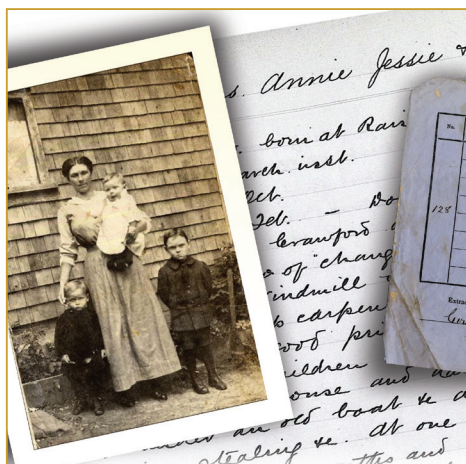 s. Annie Jessie
born at Rais
arch inst.
Oct.
Feb. - Do
Crawford
of "chang
indmill
carpen
good pri
hildren
ouse and
an old boat & a
stealing &c. At one
and
No.
128
Extra